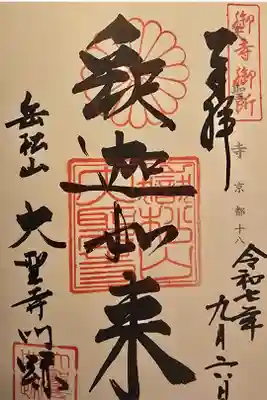 御寺御所
寺 京都十八
奉拝
令和七年九月六日
釈迦如来
岳松山 大聖寺門跡